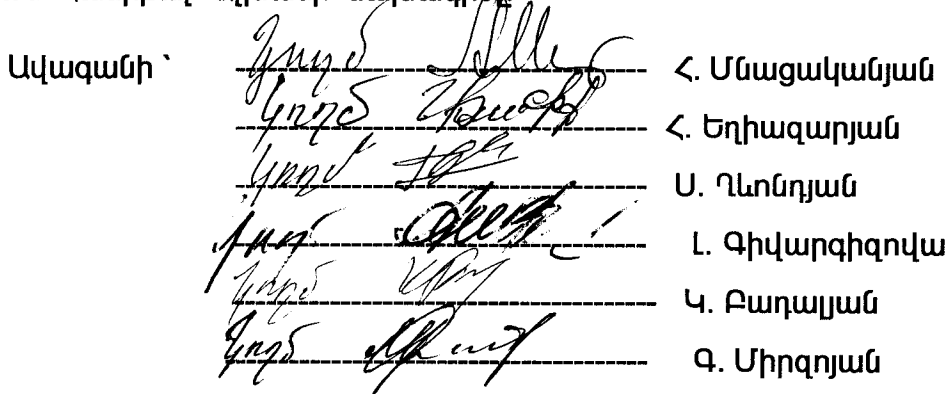 Ավագանի ՝ կողմ Հ. Մնացականյան
կողմ Հ. Եղիազարյան
կողմ Ս. Ղևոնդյան
կողմ Լ. Գիվարգիզովա
կողմ Կ. Բադալյան
կողմ Գ. Միրզոյան